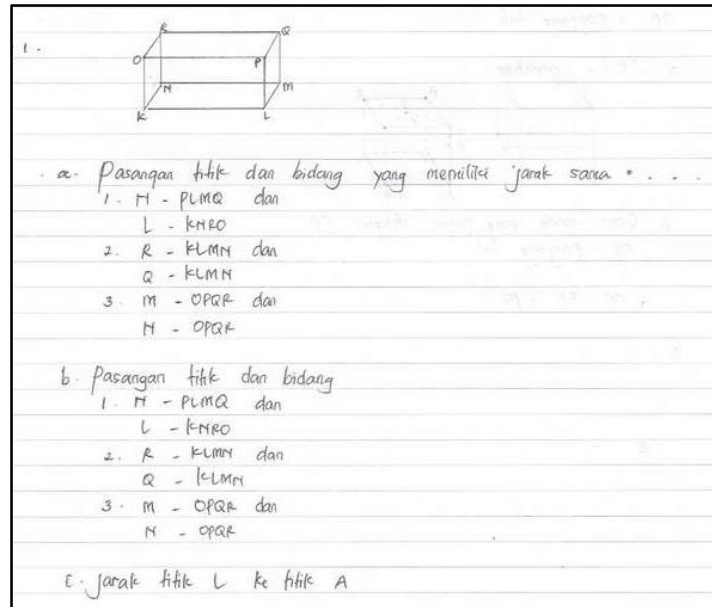 1.
R Q
O P
N M
K L
a. Pasangan titik dan bidang yang memiliki jarak sama ....
1. N - PLMQ dan
L - KNRO
2. R - KLMN dan
Q - KLMN
3. M - OPQR dan
N - OPQR
b. Pasangan titik dan bidang
1. N - PLMQ dan
L - KNRO
2. R - KLMN dan
Q - KLMN
3. M - OPQR dan
N - OPQR
c. jarak titik L ke titik A